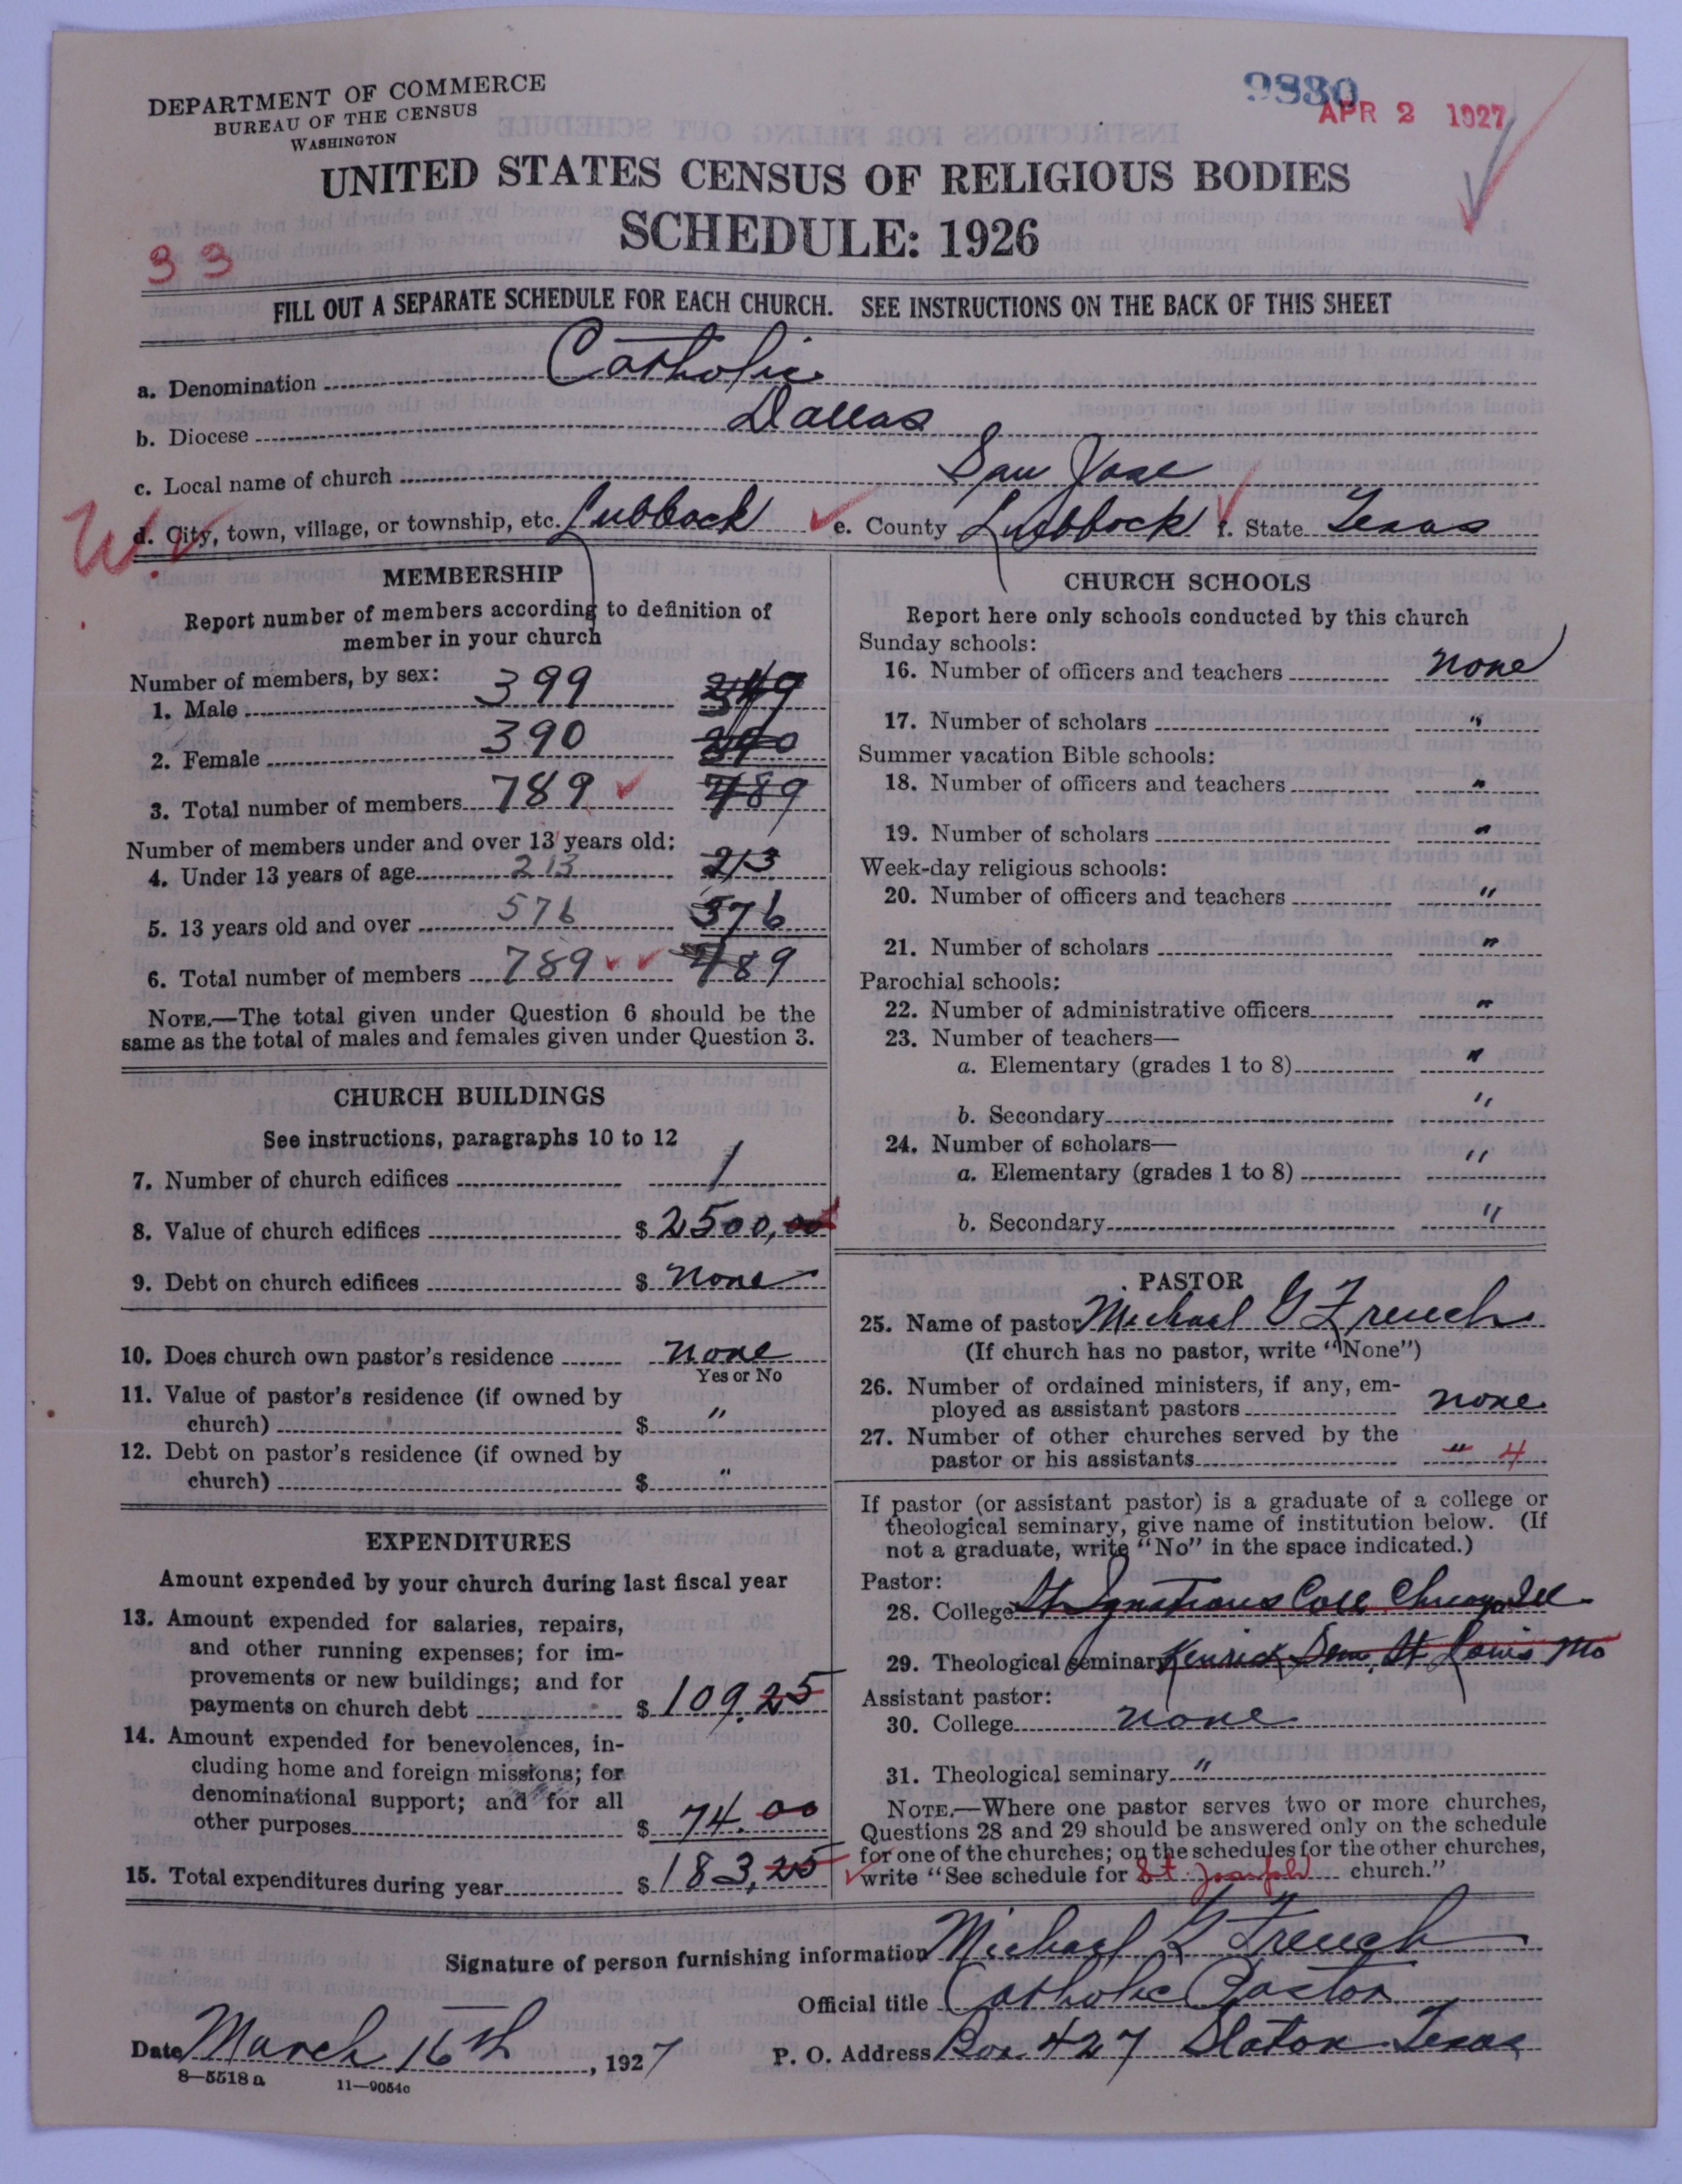 DEPARTMENT OF COMMERCE
BUREAU OF THE CENSUS
WASHINGTON
9830
APR 2 1927
UNITED STATES CENSUS OF RELIGIOUS BODIES
SCHEDULE: 1926
33
FILL OUT A SEPARATE SCHEDULE FOR EACH CHURCH. SEE INSTRUCTIONS ON THE BACK OF THIS SHEET
a. Denomination Catholic
b. Diocese Dallas
c. Local name of church San Jose
W. d. City, town, village, or township, etc. Lubbock e. County Lubbock f. State Texas
MEMBERSHIP
Report number of members according to definition of
member in your church
Number of members, by sex:
1. Male 399
2. Female 390
3. Total number of members 789 489
Number of members under and over 13 years old:
4. Under 13 years of age 213 213
5. 13 years old and over 576 576
6. Total number of members 789 489
NOTE.—The total given under Question 6 should be the
same as the total of males and females given under Question 3.
CHURCH BUILDINGS
See instructions, paragraphs 10 to 12
7. Number of church edifices 1
8. Value of church edifices $ 2500,00
9. Debt on church edifices $ none
10. Does church own pastor's residence none
Yes or No
11. Value of pastor's residence (if owned by
church) $ "
12. Debt on pastor's residence (if owned by
church) $ "
EXPENDITURES
Amount expended by your church during last fiscal year
13. Amount expended for salaries, repairs,
and other running expenses; for im-
provements or new buildings; and for
payments on church debt $ 109.25
14. Amount expended for benevolences, in-
cluding home and foreign missions; for
denominational support; and for all
other purposes $ 74.00
15. Total expenditures during year $ 183,25
CHURCH SCHOOLS
Report here only schools conducted by this church
Sunday schools:
16. Number of officers and teachers none
17. Number of scholars "
Summer vacation Bible schools:
18. Number of officers and teachers "
19. Number of scholars "
Week-day religious schools:
20. Number of officers and teachers "
21. Number of scholars "
Parochial schools:
22. Number of administrative officers "
23. Number of teachers—
a. Elementary (grades 1 to 8) "
b. Secondary "
24. Number of scholars—
a. Elementary (grades 1 to 8) "
b. Secondary "
PASTOR
25. Name of pastor Michael G French
(If church has no pastor, write "None")
26. Number of ordained ministers, if any, em-
ployed as assistant pastors none
27. Number of other churches served by the
pastor or his assistants " 4
If pastor (or assistant pastor) is a graduate of a college or
theological seminary, give name of institution below. (If
not a graduate, write "No" in the space indicated.)
Pastor:
28. College St Ignatious Coll Chicago Ill
29. Theological seminary Kenrick Sem, St Louis Mo
Assistant pastor:
30. College none
31. Theological seminary "
NOTE.—Where one pastor serves two or more churches,
Questions 28 and 29 should be answered only on the schedule
for one of the churches; on the schedules for the other churches,
write "See schedule for St. Joseph church."
Signature of person furnishing information Michael G French
Official title Catholic Pastor
Date March 16th, 1927 P. O. Address Box 427 Slaton Texas
8—5518 a 11—9054c